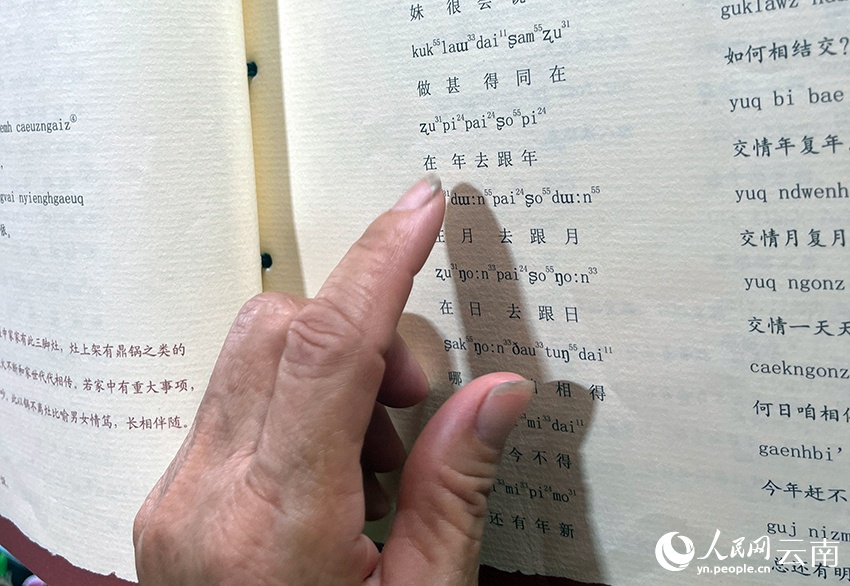 emh caeuzngaiz④
gvai nyienghgaeuq
家家有此三脚灶，灶上架有鼎锅之类的
火不断和家世代代相传。若家中有重大事项，
此以锅不离灶比喻男女情笃，长相伴随。
妹 很 会 说
kuk⁵⁵laɯ³³dai¹¹ʂam⁵⁵ʐu³¹
做 甚 得 同 在
ʐu³¹pi²⁴pai²⁴ʂo⁵⁵pi²⁴
在 年 去 跟 年
dɯːn⁵⁵pai²⁴ʂo⁵⁵dɯːn⁵⁵
月 去 跟 月
ʐu³¹ŋoːn³³pai²⁴ʂo⁵⁵ŋoːn³³
在 日 去 跟 日
ʂak⁵⁵ŋoːn³³ðau³³tuŋ⁵⁵dai¹¹
哪 相 得
mi³³dai¹¹
今 不 得
mi³³pi²⁴mo³¹
还 有 年 新
guklawz
如何相结交？
yuq bi bae
交情年复年，
yuq ndwenh
交情月复月
yuq ngonz
交情一天天
caekngonz
何日咱相
gaenhbi'
今年赶不
guj nizm
总还有明
人民网 云南
yn.people.cn